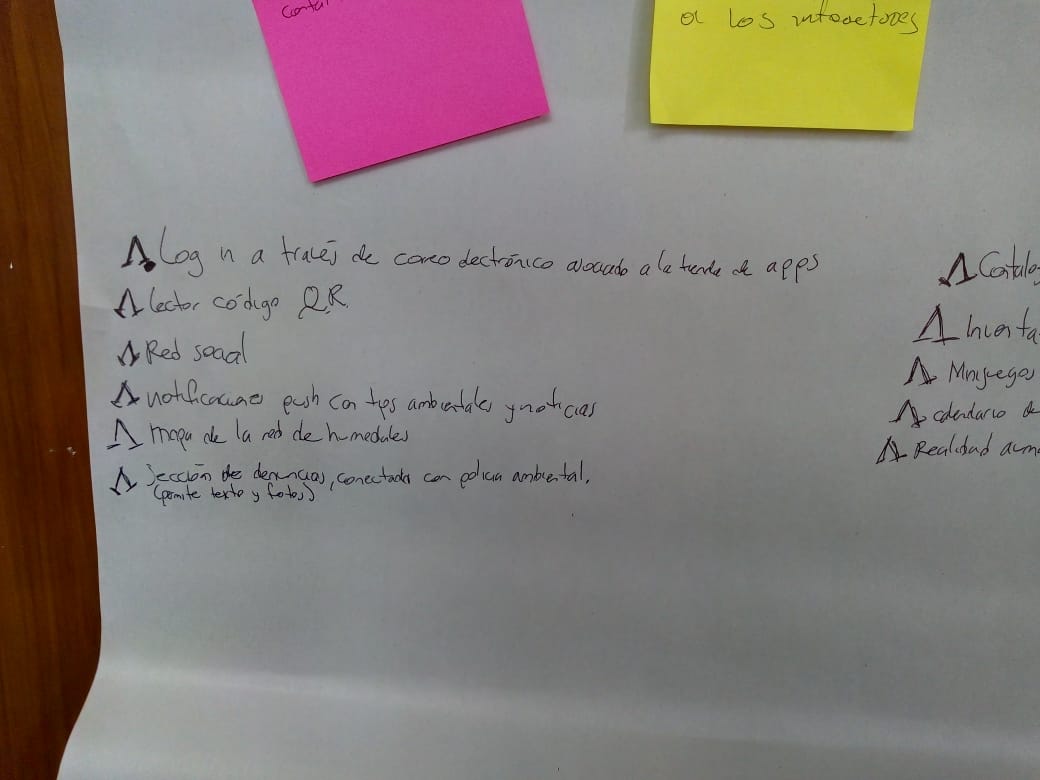 a los
Log in a través de correo electrónico asociado a la tienda de apps
lector código QR
Red social
notificaciones push con tips ambientales y noticias
mapa de la red de humedales
Sección de denuncias, conectada con policia ambiental.
(permite texto y fotos)
Minijuegos
calendario de
Realidad aum